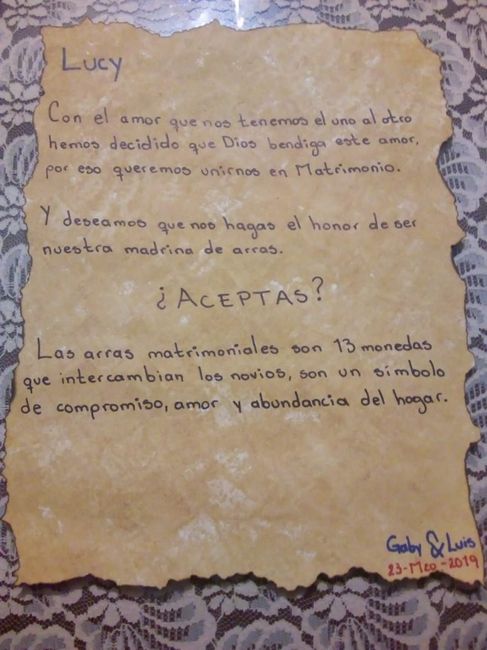 Lucy
Con el amor que nos tenemos el uno al otro
hemos decidido que Dios bendiga este amor,
por eso queremos unirnos en Matrimonio.
Y deseamos que nos hagas el honor de ser
nuestra madrina de arras.
¿ACEPTAS?
Las arras matrimoniales son 13 monedas
que intercambian los novios, son un símbolo
de compromiso, amor y abundancia del hogar.
Gaby & Luis
23-Mzo-2019